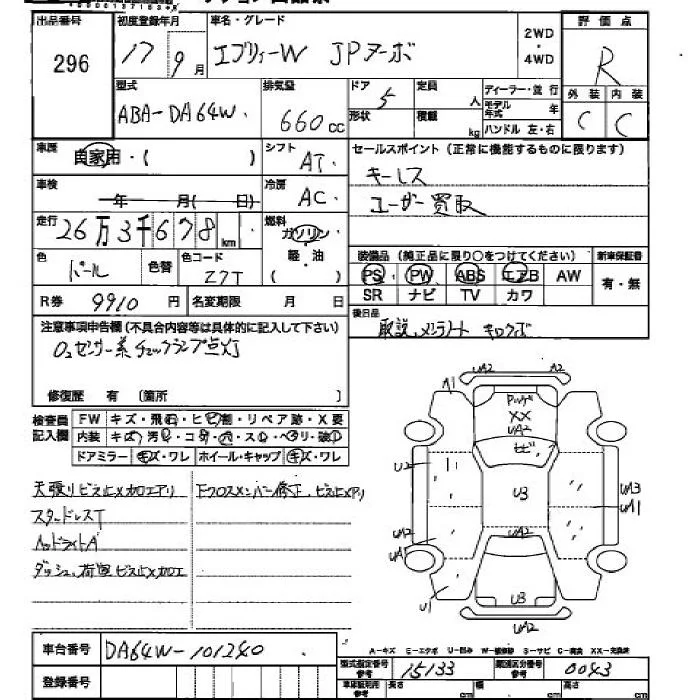 出品番号
296
初度登録年月
17 9月
車名・グレード
エブリィーW JPターボ
2WD
・
4WD
評価点
R
外装 内装
C C
型式
ABA-DA64W
排気量
660cc
ドア
5
定員
人
形状
積載
kg
ディーラー・並行
モデル年式 年
ハンドル 左・右
車歴
自家用・( )
シフト
AT
セールスポイント(正常に機能するものに限ります)
キーレス
ユーザー買取
車検
年 月( 日)
冷房
AC
走行
26万3千678km
燃料
ガソリン
軽・油
( )
色
パール
色替
色コード
Z7T
装備品(純正品に限り○をつけてください)
新車保証書
PS PW ABS エアB AW
SR ナビ TV カワ
有・無
R券
9910円
名変期限 月 日
後日品
取説、メンテノート キロクボ
注意事項申告欄(不具合内容等は具体的に記入して下さい)
O2センサー系チェックランプ点灯
修復歴 有 〔箇所 〕
検査員
記入欄
FW キズ・飛石・ヒビ割・リペア跡・X要
内装 キズ・汚れ・コゲ・穴・スレ・ヘタリ・破れ
ドアミラー キズ・ワレ ホイール・キャップ キズ・ワレ
天張りビス止メ加工アリ
スタッドレスT
ヘッドライトA
ダッシュ、荷室ビス止メ加工
Fクロスメンバー修正、ビス止メアリ
UA2 A2
A1
XX
UA2
U2
U3
UA3
UA1
UA2
UA1
UA2
U1
U3
UA2
車台番号
DA64W-101240
登録番号
A-キズ E-エクボ U-凹み W-補修跡 S-サビ C-腐食 XX-交換済
型式指定番号
15133
類別区分番号
0043
長さ cm
幅 cm
高さ cm